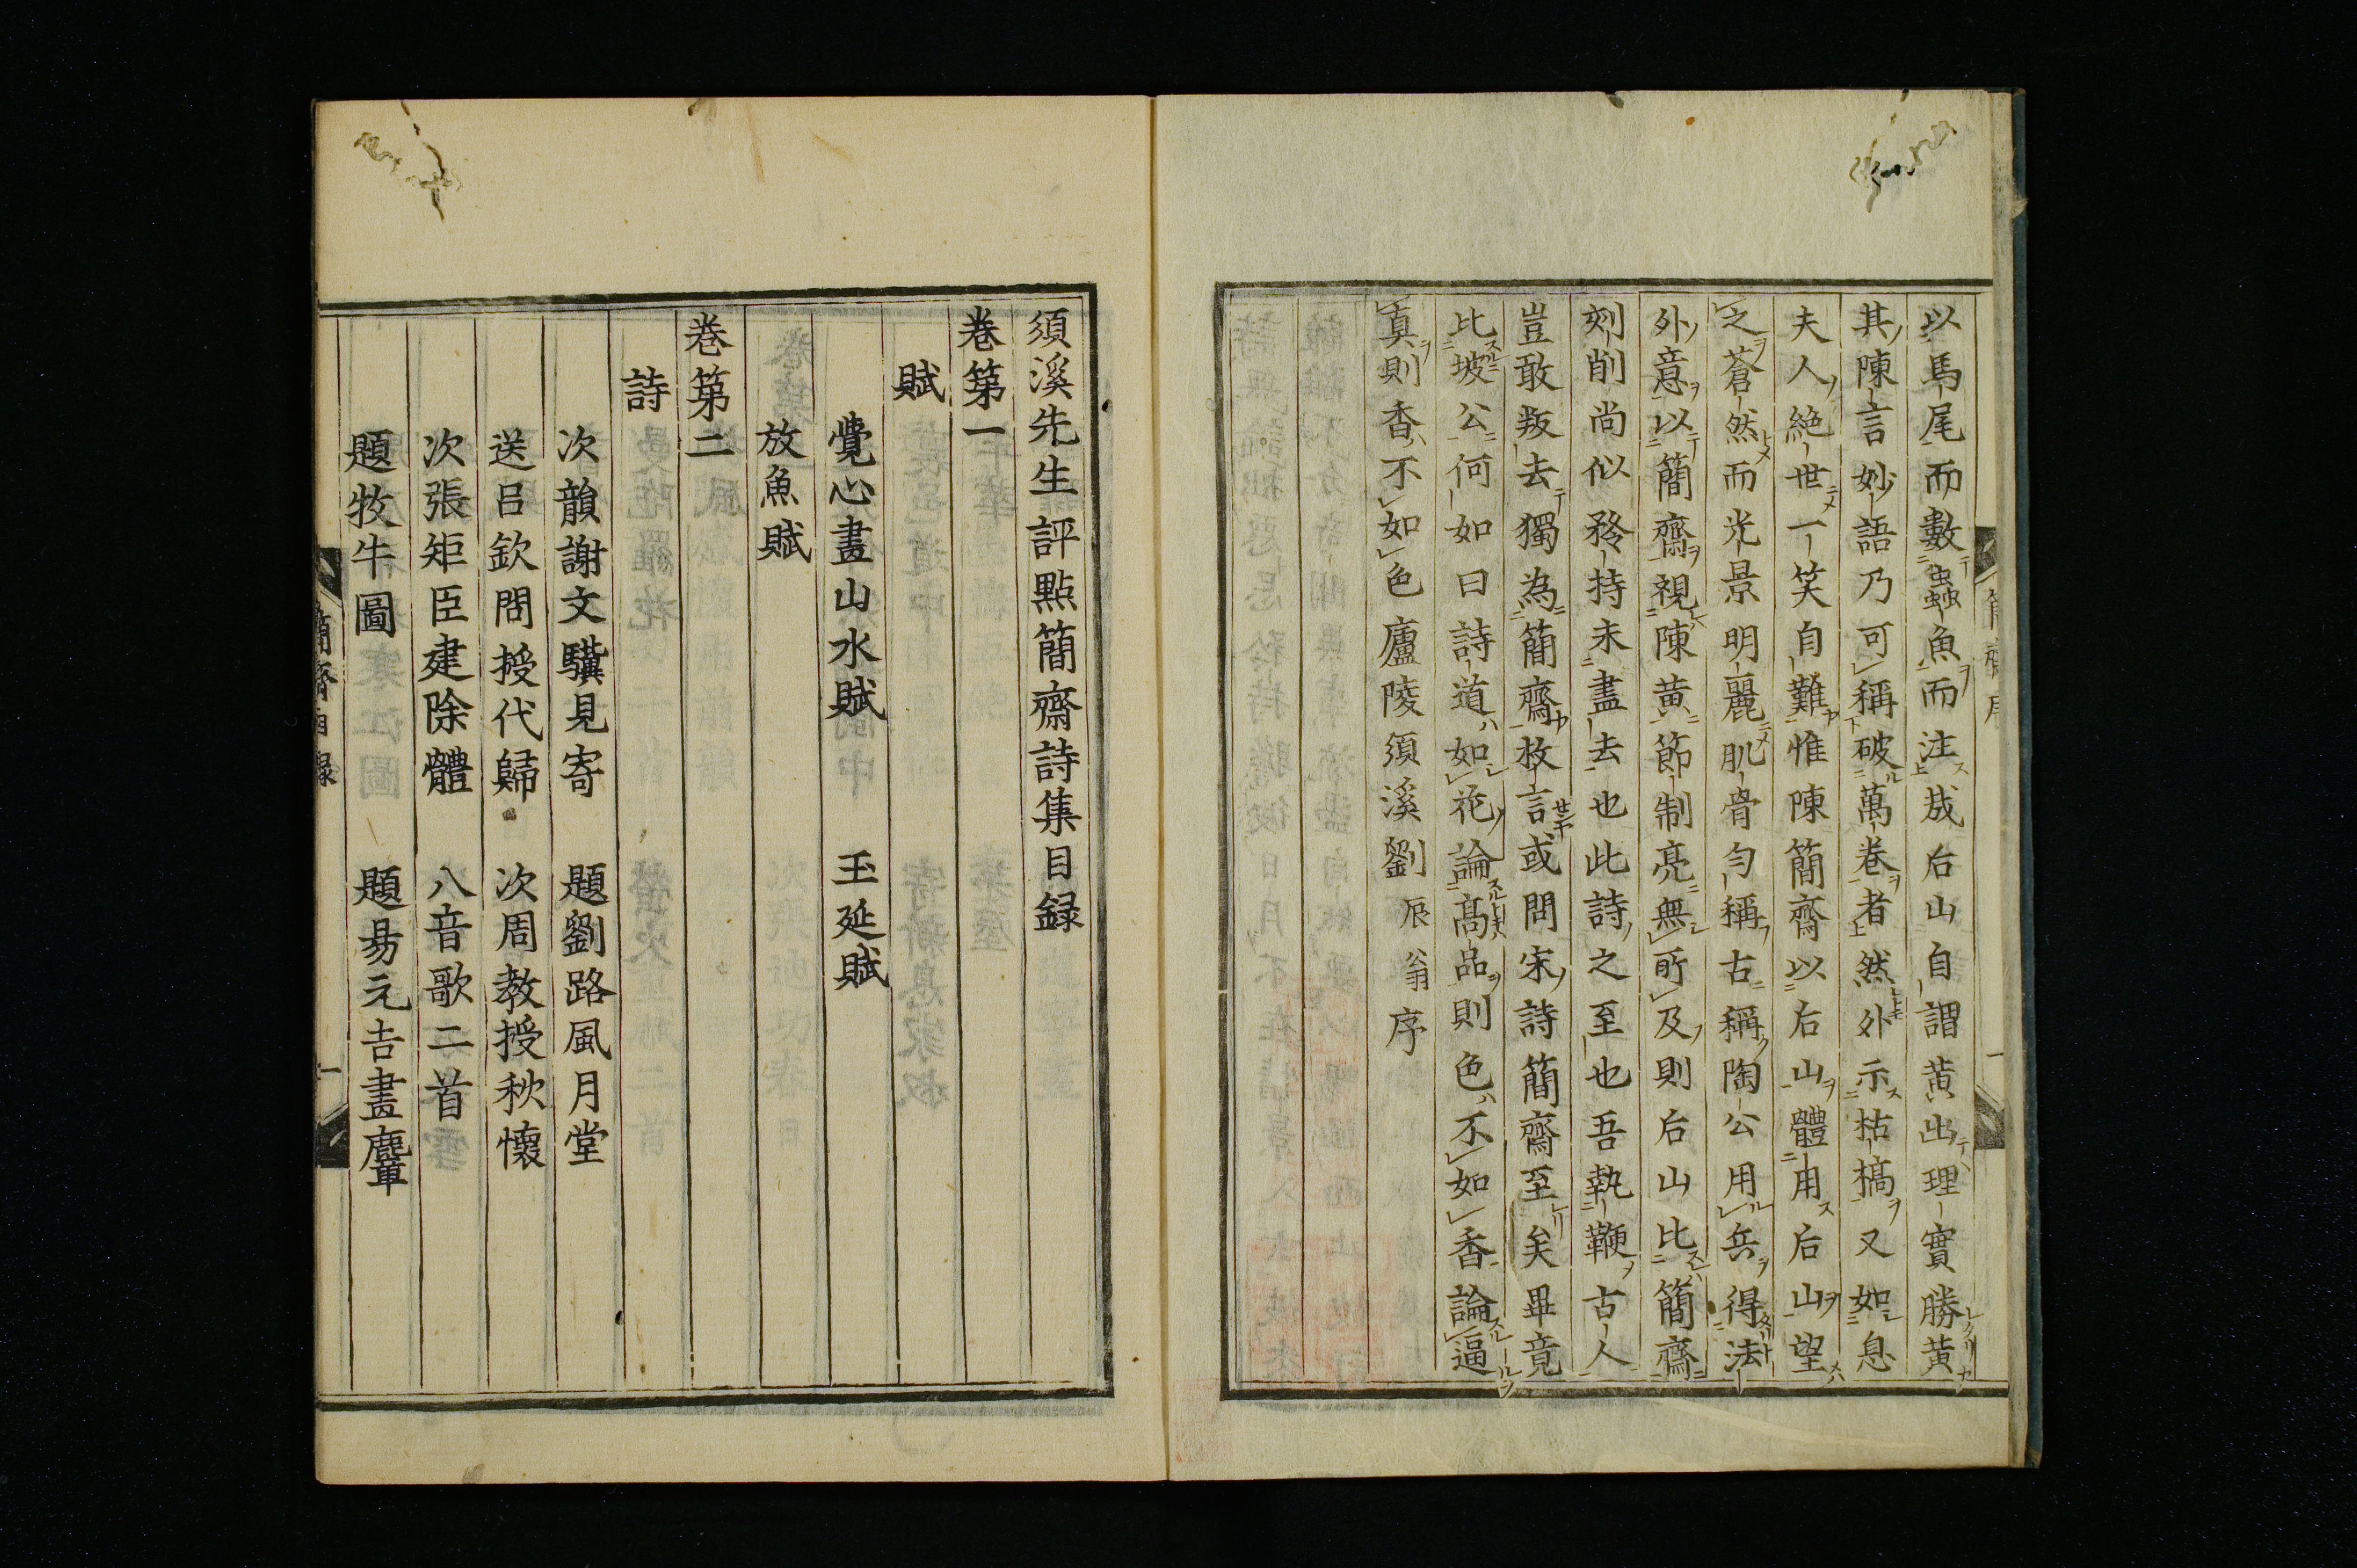 以馬尾而數蟲魚而注㦲后山自謂黃出理實勝黃
其陳言妙語乃可稱破萬卷者然外示枯槁又如息
夫人絶世一笑自難惟陳簡齋以后山體用后山望
之蒼然而光景明麗肌骨勻稱古稱陶公用兵得法
外意以簡齋視陳黃節制亮無所及則后山比簡齋
刻削尚似矜持未盡去也此詩之至也吾執鞭古人
豈敢叛去獨為簡齋枚言或問宋詩簡齋至矣畢竟
比坡公何如曰詩道如花論髙品則色不如香論逼
真則香不如色廬陵須溪劉辰翁序
須溪先生評點簡齋詩集目録
卷第一
賦
覺心畫山水賦　玉延賦
放魚賦
卷第二
詩
次韻謝文驥見寄　題劉路風月堂
送呂欽問授代歸　次周教授秋懷
次張矩臣建除體　八音歌二首
題牧牛圖　題易元吉畫麞
簡齋目録　一